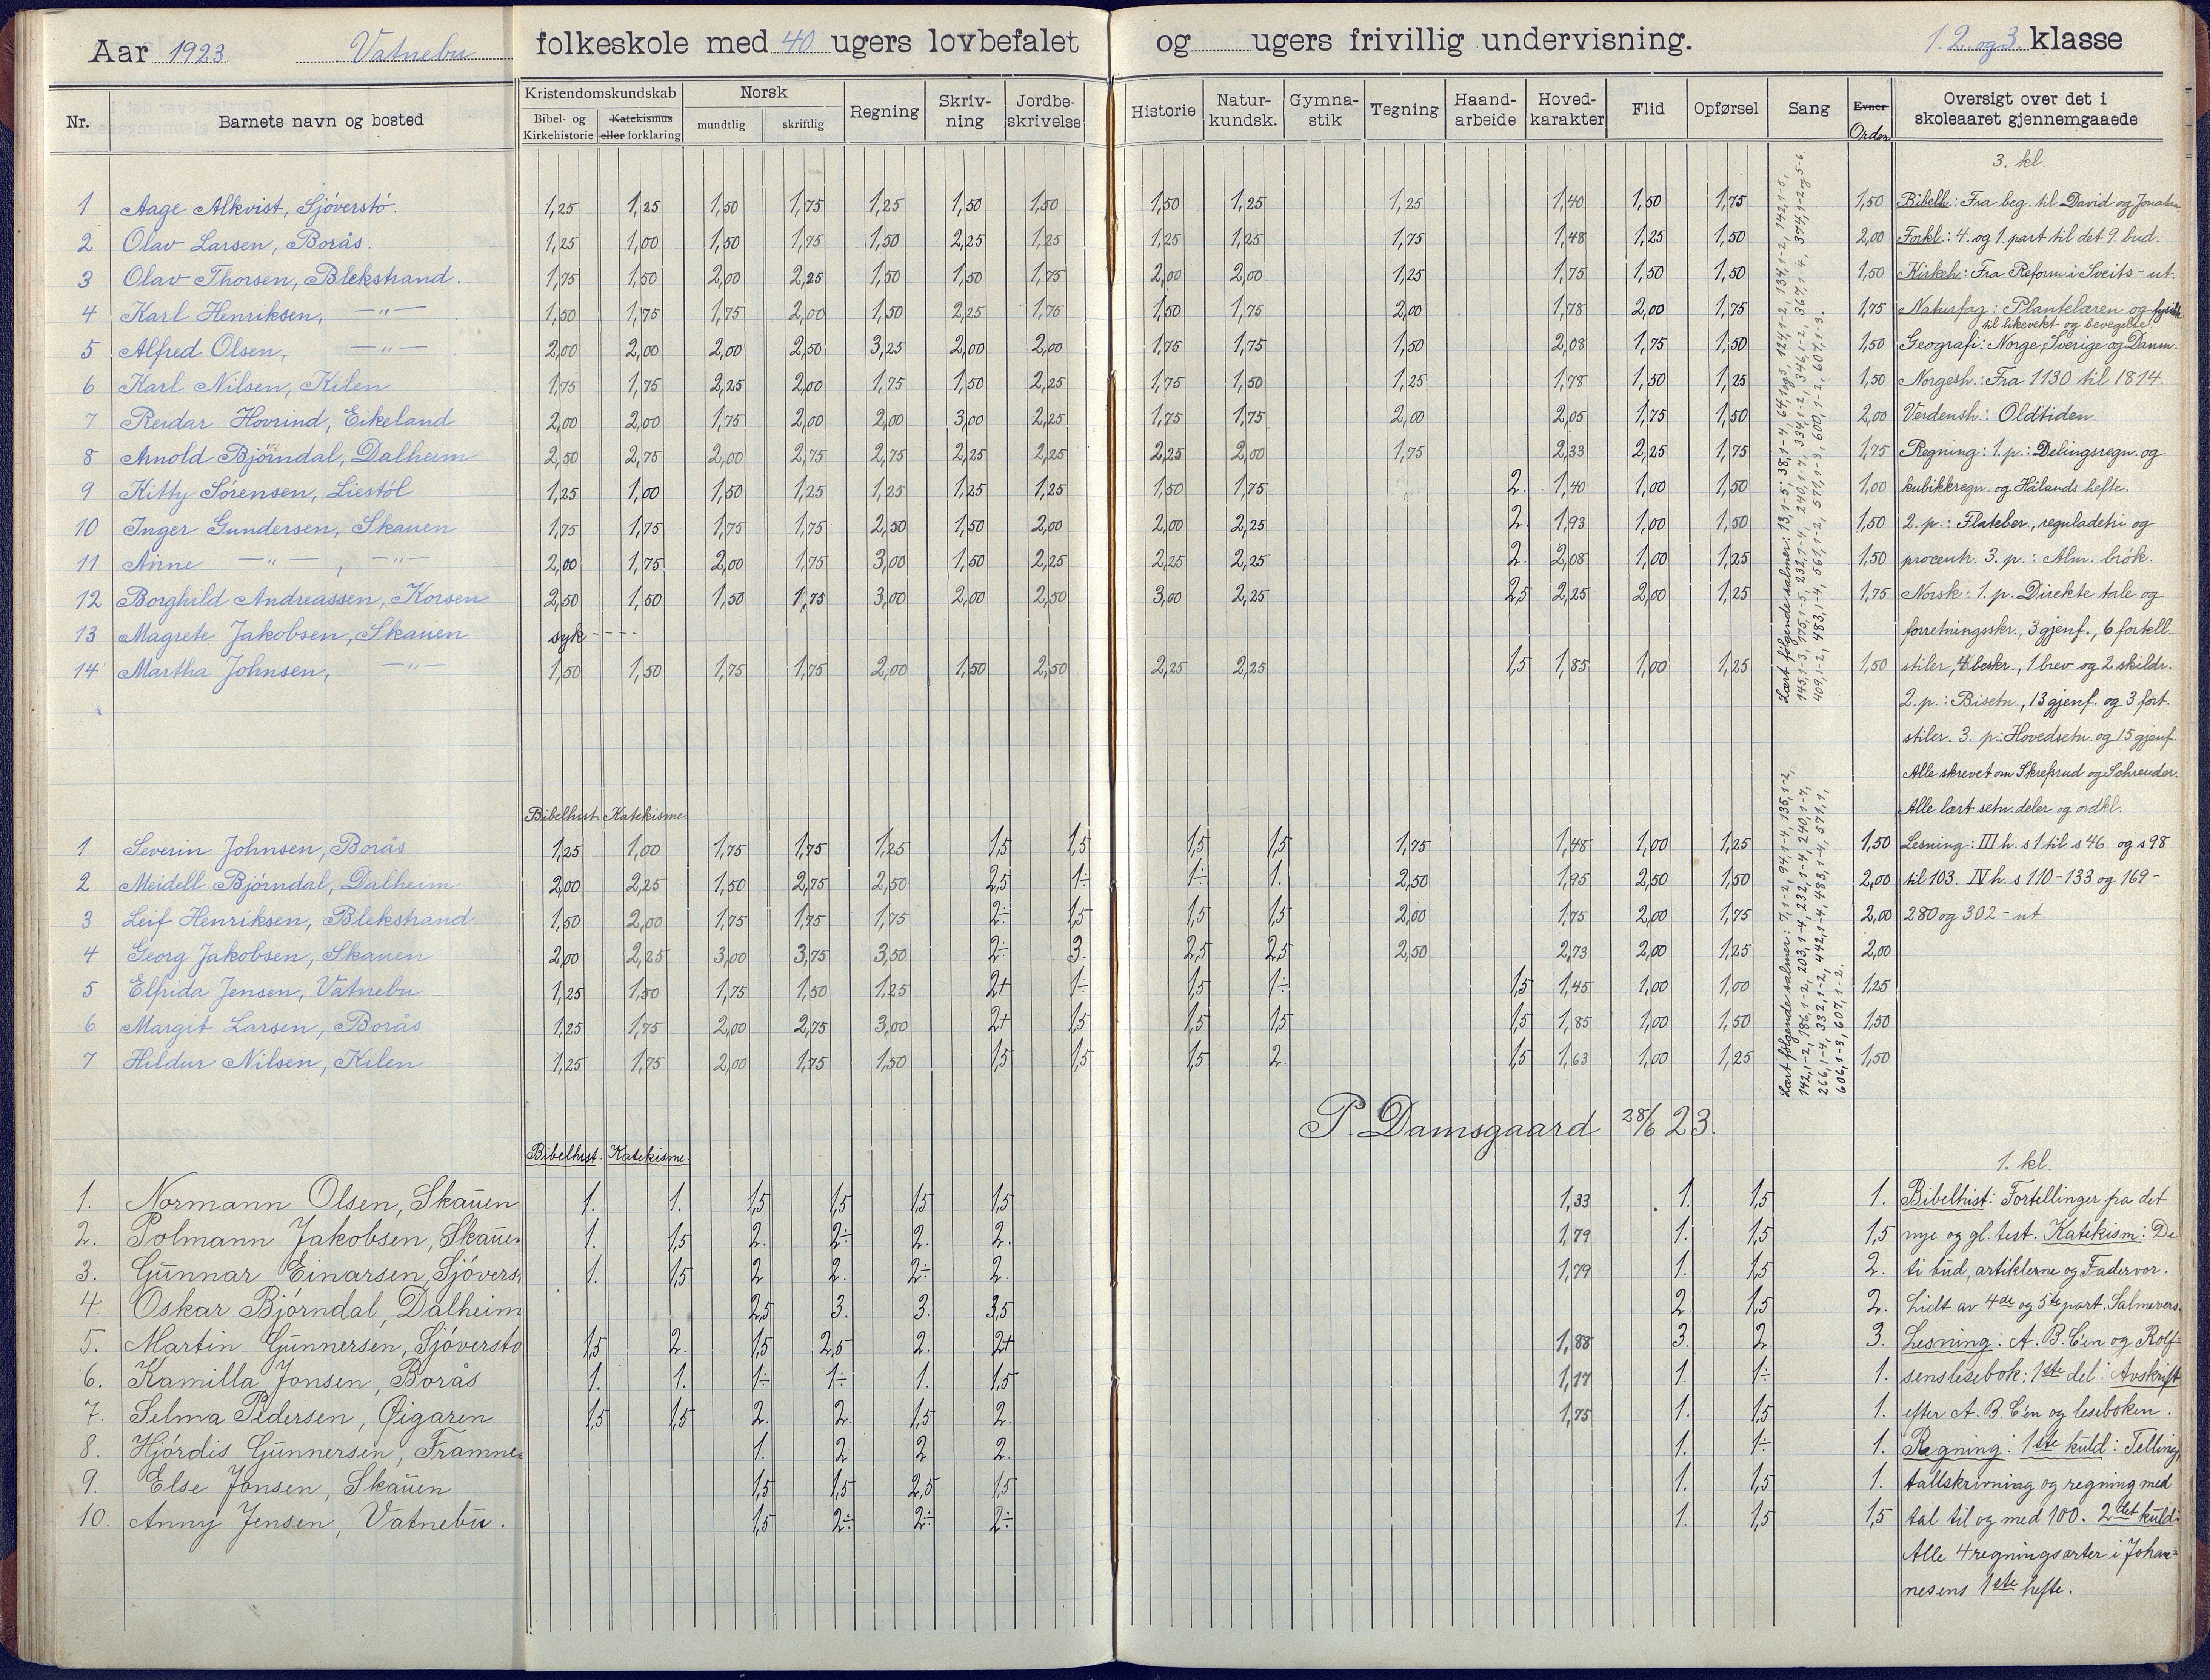 Aar 1923 Vatnebu folkeskole med 40 ugers lovbefalet og ugers frivillig undervisning. 1. 2. og 3. klasse
Nr. Barnets navn og bosted Kristendomskundskab Bibel- og Kirkehistorie Katekismus eller forklaring Norsk mundtlig skriftlig Regning Skriv-ning Jordbe-skrivelse Historie Natur-kundsk. Gymna-stik Tegning Haand-arbeide Hoved-karakter Flid Opførsel Sang Evner Orden Oversigt over det i skoleaaret gjennemgaaede
3. kl.
1 Aage Alkvist, Sjöverstö. 1,25 1,25 1,50 1,75 1,25 1,50 1,50 1,50 1,25 1,25 1,40 1,50 1,75 1,50 Bibelh.: Fra beg. til David og Jonatan
2 Olav Larsen, Borås. 1,25 1,00 1,50 1,75 1,50 2,25 1,25 1,25 1,25 1,75 1,48 1,25 1,50 2,00 Forkl.: 4. og 1. part til det 9. bud.
3 Olav Thorsen, Blekstrand. 1,75 1,50 2,00 2,25 1,50 1,50 1,75 2,00 2,00 1,25 1,75 1,50 1,50 1,50 Kirkeh: Fra Reform. i Sveits - ut.
4 Karl Henriksen, —"— 1,50 1,75 1,75 2,00 1,50 2,25 1,75 1,50 1,75 2,00 1,78 2,00 1,75 1,75 Naturfag: Plantelæren og fysikk
til likevekt og bevegelse.
5 Alfred Olsen, —"— 2,00 2,00 2,00 2,50 3,25 2,00 2,00 1,75 1,75 1,50 2,08 1,75 1,50 1,50 Geografi: Norge, Sverige og Danm.
6 Karl Nilsen, Kilen 1,75 1,75 2,25 2,00 1,75 1,50 2,25 1,75 1,50 1,25 1,78 1,50 1,25 1,50 Norgesh.: Fra 1130 til 1814.
7 Reidar Hovrind, Eikeland 2,00 2,00 1,75 2,00 2,00 3,00 2,25 1,75 1,75 2,00 2,05 1,75 1,50 2,00 Verdensh.: Oldtiden.
8 Arnold Bjørndal, Dalheim 2,50 2,75 2,00 2,75 2,75 2,25 2,25 2,25 2,00 1,75 2,33 2,25 1,75 1,75 Regning: 1. p.: Delingsregn. og
9 Kitty Sörensen, Liestöl 1,25 1,00 1,50 1,25 1,25 1,25 1,25 1,50 1,75 2. 1,40 1,00 1,50 1,00 kubikkregn. og Hålands hefte.
10 Inger Gundersen, Skauen 1,75 1,75 1,75 1,75 2,50 1,50 2,00 2,00 2,25 2. 1,93 1,00 1,50 1,50 2. p.: Flateber., reguladetri og
11 Anne —"—, —"— 2,00 1,75 2,00 1,75 3,00 1,50 2,25 2,25 2,25 2. 2,08 1,00 1,25 1,50 procentr. 3. p.: Alm. brök.
12 Borghild Andreassen, Korsen 2,50 1,50 1,50 1,75 3,00 2,00 2,50 3,00 2,25 2,5 2,25 2,00 1,25 1,75 Norsk: 1. p. Direkte tale og
13 Magrete Jakobsen, Skauen syk - - - - forretningsskr., 3 gjenf., 6 fortell.
14 Martha Johnsen, —"— 1,50 1,50 1,75 1,75 2,00 1,50 2,50 2,25 2,25 1,5 1,85 1,00 1,25 1,50 stiler, 4 beskr., 1 brev og 2 skildr.
Lært fölgende salmer: 13,1-5, 38,1-4, 64,1og5, 124,1-2, 134,1-2, 142,1-5,
145,1-3, 175,1-5, 232,1-4, 240,1-7, 334,1-2, 346,1-2, 367,1-4, 374,1-2og5-6
409,1-2, 483,1-4, 561,1-2, 571,1-3, 600,1-2, 607,1-3.
2. p.: Bisetn., 13 gjenf. og 3 fort.
stiler. 3. p.: Hovedsetn. og 15 gjenf.
Alle skrevet om Skrefsrud og Schreuder.
Bibelhist. Katekisme Alle lært setn.deler og ordkl.
1 Severin Johnsen, Borås 1,25 1,00 1,75 1,75 1,25 1,5 1,5 1,5 1,5 1,75 1,48 1,00 1,25 1,50 Lesning: III h. s 1 til s 46 og s 98
2 Meidell Bjørndal, Dalheim 2,00 2,25 1,50 2,75 2,50 2,5 1÷ 1÷ 1. 2,50 1,95 2,50 1,50 2,00 til 103. IV h. s 110-133 og 169-
3 Leif Henriksen, Blekstrand 1,50 2,00 1,75 1,75 1,75 2÷ 1,5 1,5 1,5 2,00 1,75 2,00 1,75 2,00 280 og 302 - ut.
4 Georg Jakobsen, Skauen 2,00 2,25 3,00 3,75 3,50 2÷ 3. 2,5 2,5 2,50 2,73 2,00 1,25 2,00
5 Elfrida Jensen, Vatnebu 1,25 1,50 1,75 1,50 1,25 2+ 1÷ 1,5 1÷ 1,5 1,45 1,00 1,00 1,25
6 Margit Larsen, Borås 1,25 1,75 2,00 2,75 3,00 2+ 1,5 1,5 1,5 1,5 1,85 1,00 1,50 1,50
7 Hildur Nilsen, Kilen 1,25 1,75 2,00 1,75 1,50 1,5 1,5 1,5 2. 1,5 1,63 1,00 1,25 1,50
Lært fölgende salmer: 7,1-2, 94,1-4, 135,1-2,
142,1-2, 186,1-2, 203,1-4, 232,1-4, 240,1-7,
266,1-4, 332,1-2, 442,1-4, 483,1-4, 571,1,
606,1-3, 607,1-2.
P. Damsgaard 28/6 23.
Bibelhist. Katekisme. 1. kl.
1. Normann Olsen, Skauen 1. 1. 1,5 1,5 1,5 1,5 1,33 1. 1,5 1. Bibelhist: Fortellinger fra det
2. Polmann Jakobsen, Skauen 1. 1,5 2. 2÷ 2. 2. 1,79 1. 1,5 1,5 nye og gl. test. Katekism: De
3. Gunnar Einarsen, Sjövers 1. 1,5 2 2. 2÷ 2. 1,79 1. 1,5 2. ti bud, artiklerne og Fadervor.
4. Oskar Bjørndal, Dalheim 2,5 3. 3. 3,5 2. 1,5 2. Lidt av 4de og 5te part. Salmevers.
5. Martin Gunnersen, Sjöverstö 1,5 2. 1,5 2,5 2. 2+ 1,88 3. 2. 3. Lesning: A. B. C'en og Rolf-
6. Kamilla Jonsen, Borås 1. 1. 1÷ 1÷ 1. 1,5 1,17 1. 1÷ 1. senslesebok: 1ste del: Avskrift
7. Selma Pedersen, Øigaren 1,5 1,5 2. 2. 1,5 2. 1,75 1. 1,5 1. efter A. B. C'en og leseboken.
8. Hjördis Gunnersen, Framnes 1. 2 2 2. 1. 1÷ 1. Regning: 1ste kuld: Telling,
9. Else Jonsen, Skauen 1,5 1,5 2,5 1,5 1. 1,5 1. tallskrivning og regning med
10. Anny Jensen, Vatnebu. 1,5 2÷ 2÷ 2÷ 1. 1,5 1,5 tal til og med 100. 2det kuld:
Alle 4 regningsarter i Johan=
nesens 1ste hefte.